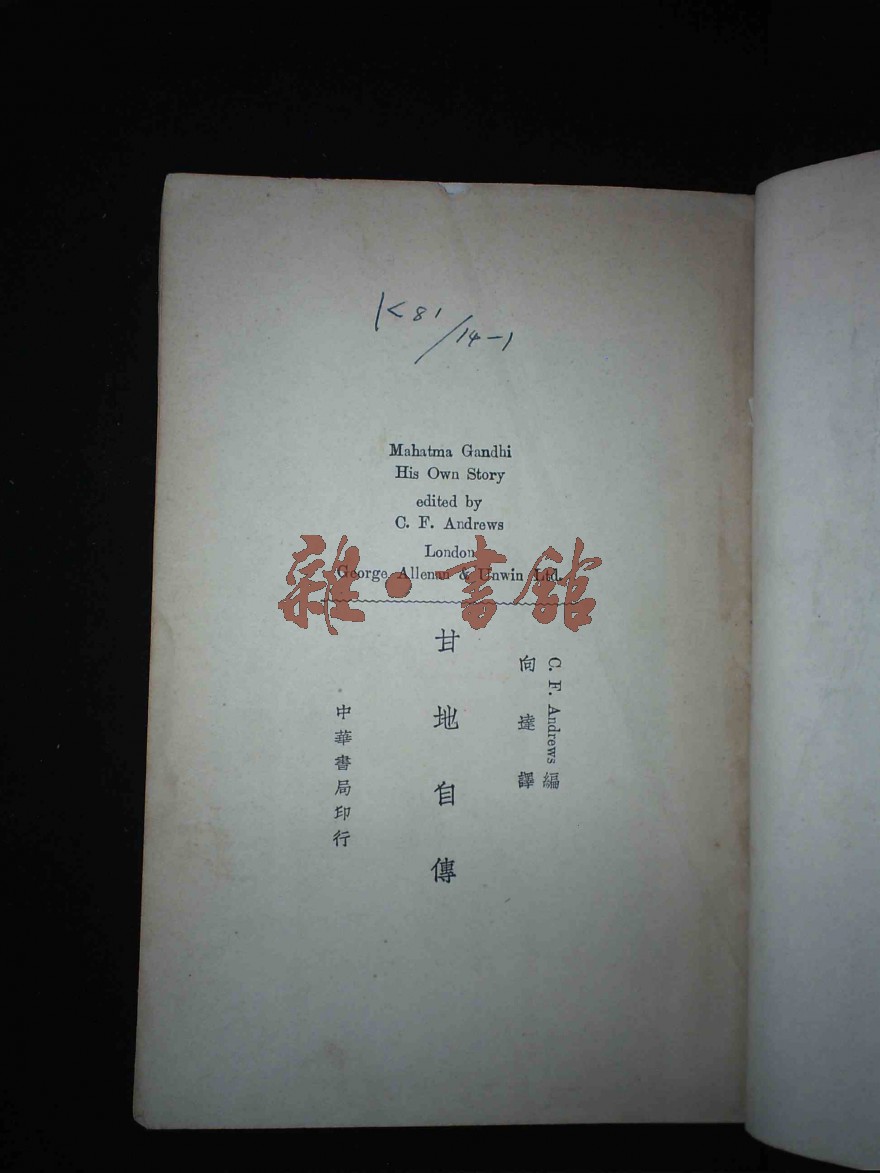 K81
/14-1
Mahatma Gandhi
His Own Story
edited by
C. F. Andrews
London
George Allenan & Unwin Ltd.
雜·書館
C. F. Andrews 編
向達譯
甘地自傳
中華書局印行